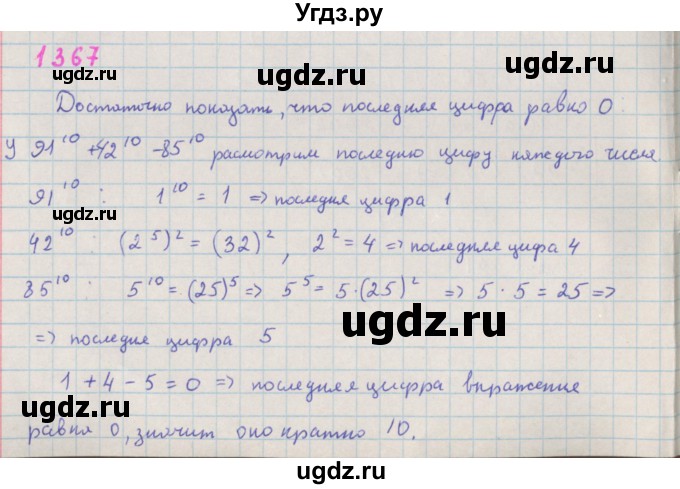 Угдз.ру
1367
ugdz.ru ugdz.ru
Достаточно показать, что последняя цифра равна 0.
У 91^10 + 42^10 - 85^10 расмотрим последнюю цифру каждого числа
91^10 : 1^10 = 1 => последняя цифра 1
ugdz.ru ugdz.ru
42^10 : (2^5)^2 = (32)^2, 2^2 = 4 => последняя цифа 4
85^10 : 5^10 = (25)^5 => 5^5 = 5·(25)^2 => 5·5 = 25 =>
ugdz.ru
=> последняя цифра 5
ugdz.ru ugdz.ru
1 + 4 - 5 = 0 => последняя цифра выражение
равна 0, значит оно кратно 10.
ugdz.ru ugdz.ru